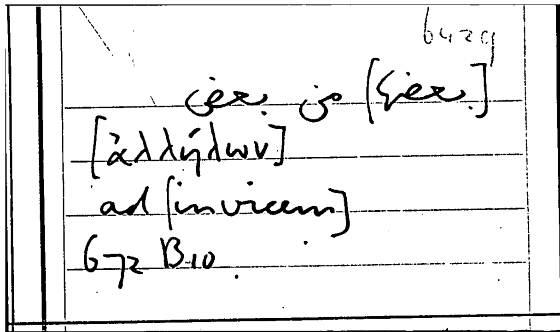 6429
[بعض] من بعض
[ἀλλήλων]
ad [invicem]
672 B10